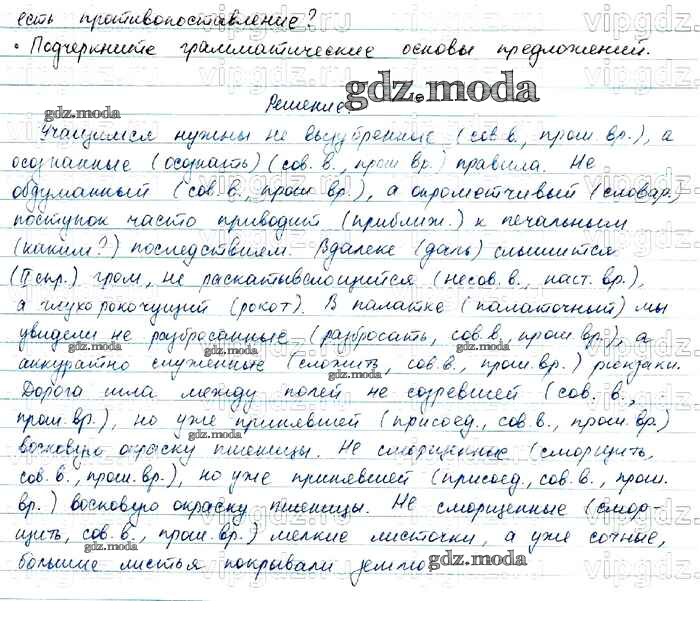 есть противопоставление?
• Подчеркните грамматические основы предложений.
gdz.moda
Решение.
gdz.moda
Учащимся нужны не вызубренные (сов. в., прош. вр.), а
осознанные (осознать) (сов. в., прош. вр.) правила. Не
обдуманный (сов. в., прош. вр.), а опрометчивый (словар.)
поступок часто приводит (приближ.) к печальным
(каким?) последствиям. Вдалеке (даль) слышится
(II спр.) гром, не раскатывающийся (несов. в., наст. вр.),
а глухо рокочущий (рокот). В палатке (палаточный) мы
увидели не разбросанные (разбросать, сов. в., прош. вр.), а
gdz.moda gdz.moda gdz.moda
аккуратно сложенные (сложить, сов. в., прош. вр.) рюкзаки.
Дорога шла между полей не созревшей (сов. в.,
прош. вр.), но уже принявшей (присоед., сов. в., прош. вр.)
gdz.moda
восковую окраску пшеницы. Не сморщенные (сморщить,
сов. в., прош. вр.), но уже принявшей (присоед., сов. в., прош.
вр.) восковую окраску пшеницы. Не сморщенные (смор-
щить, сов. в., прош. вр.) мелкие листочки, а уже сочные,
gdz.moda
большие листья покрывали землю
gdz.moda
vipgdz.ru